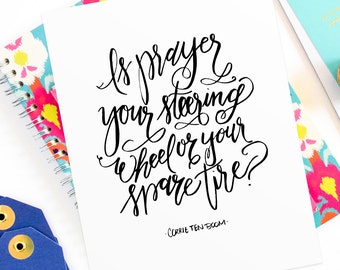 Is prayer
your steering
wheel or your
spare tire?
·CORRIE TEN BOOM·